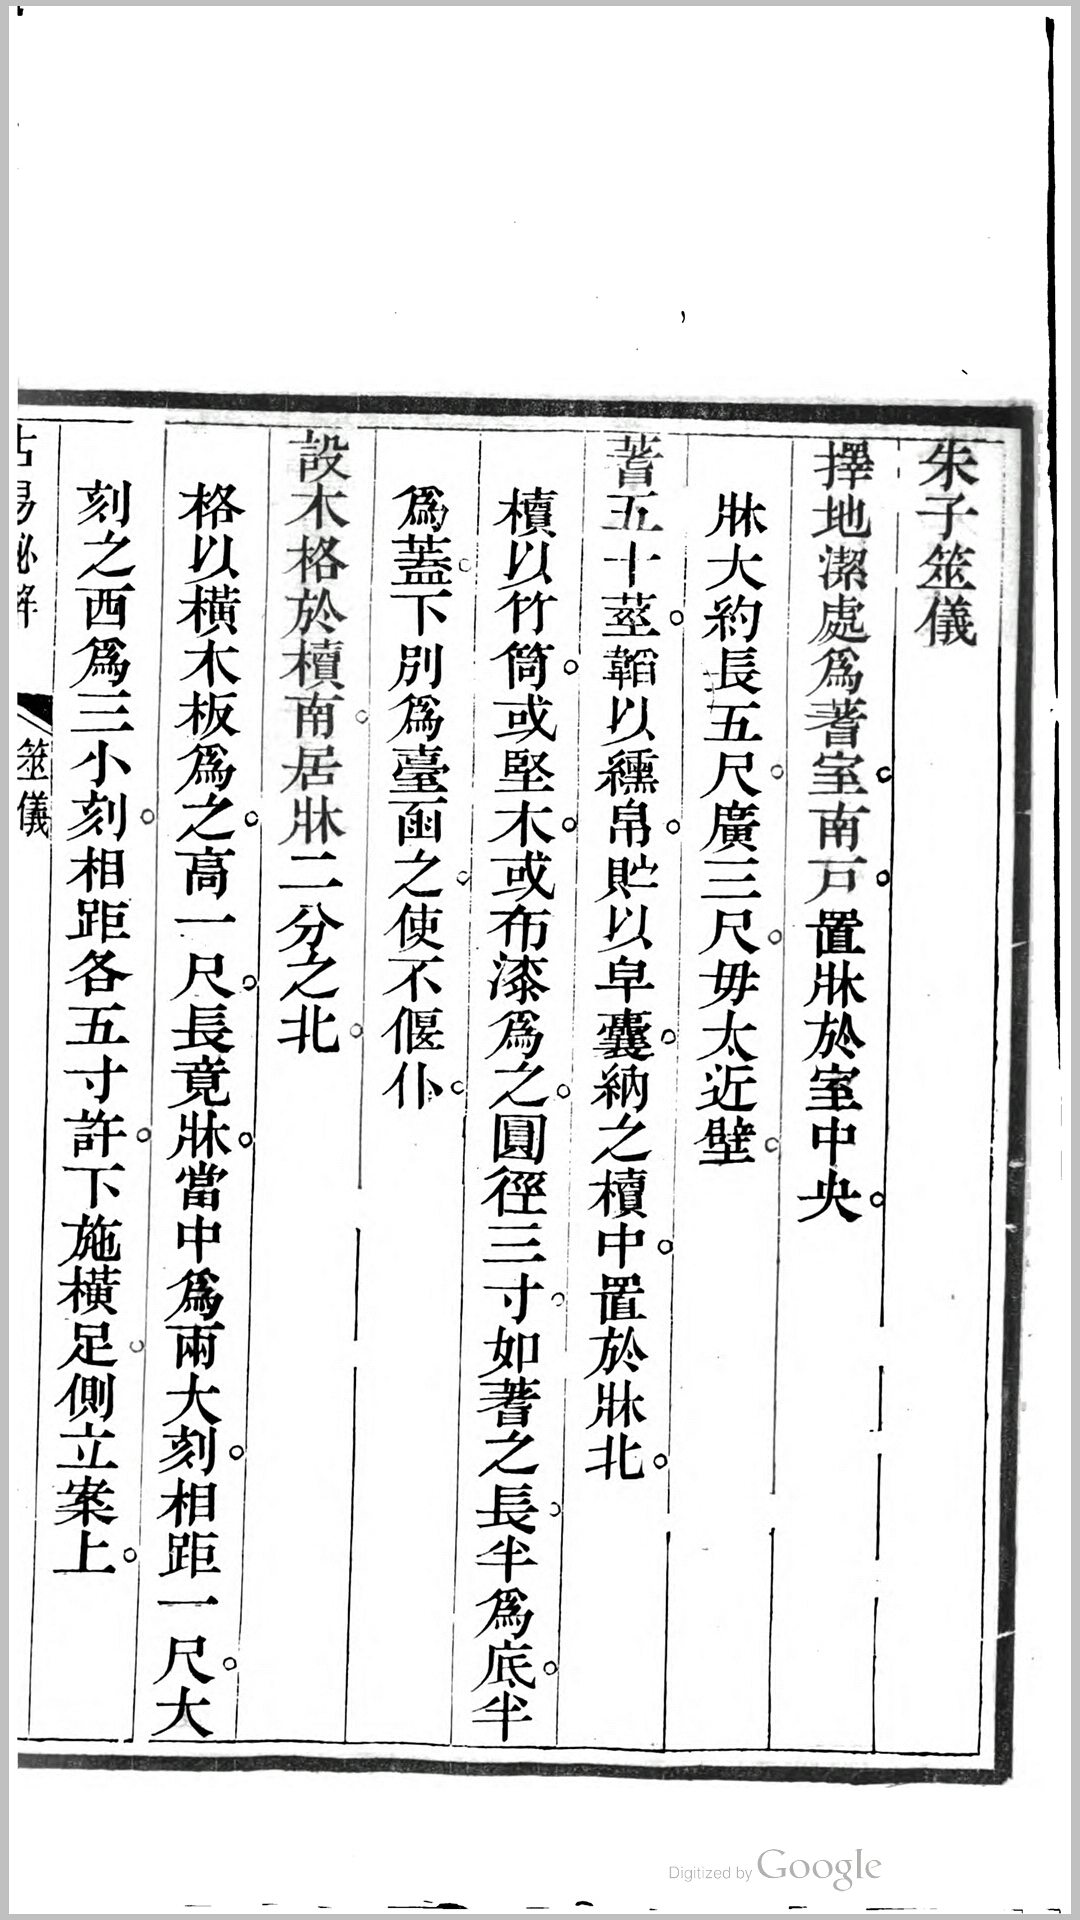 朱子筮儀
擇地潔處爲蓍室。南戶。置牀於室中央。
牀大約長五尺。廣三尺。毋太近壁。
蓍五十莖。韜以纁帛。貯以皁囊。納之櫝中。置於牀北。
櫝以竹筒。或堅木。或布漆爲之。圓徑三寸。如蓍之長。半爲底。半
爲蓋。下別爲臺函之。使不偃仆。
設木格於櫝南。居牀二分之北。
格以橫木板爲之。高一尺。長竟牀。當中爲兩大刻。相距一尺。大
刻之西爲三小刻。相距各五寸許。下施橫足。側立案上。
筮儀
Digitized by Google